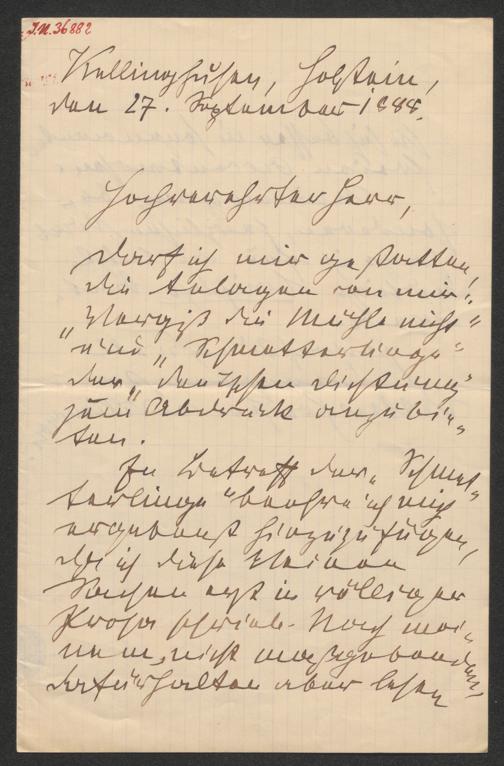 I.N. 36882
Kellinghusen, Holstein,
den 27. September 1888.
Hochverehrter Herr,
Darf ich mir gestatten,
die Anlagen von mir:
„Vergiß die Mühle nicht“
und „Schmetterlinge“
der „Deutschen Dichtung“
zum Abdruck anzubie-
ten.
In Betreff der „Schmet-
terlinge“ beehre ich mich
ergebenst hinzuzufügen,
daß ich diese kleinen
Sachen erst in völliger
Prosa schrieb. Nach mei-
nem, nicht maßgebenden,
Dafürhalten aber lesen